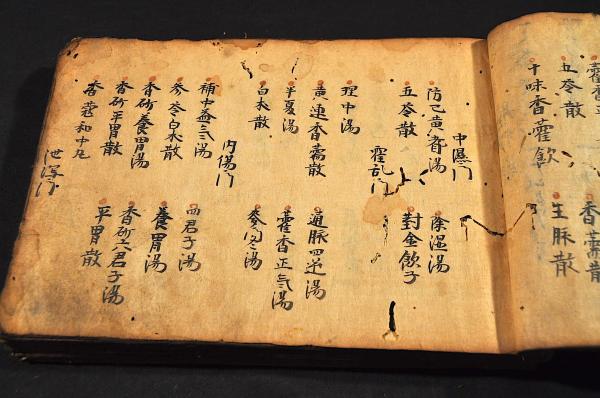 香薷散
五苓散 生脉散
十味香薷飲
中濕门
防己黄耆湯 除濕湯
五苓散 對金飲子
霍乱门
理中湯 通脉四逆湯
黄連香薷散 藿香正氣湯
半夏湯 麥冬湯
白朮散
内傷门
補中益氣湯 四君子湯
參苓白朮散 養胃湯
香砂養胃湯 香砂六君子湯
香砂平胃散 平胃散
香蔻和中丸
泄瀉门